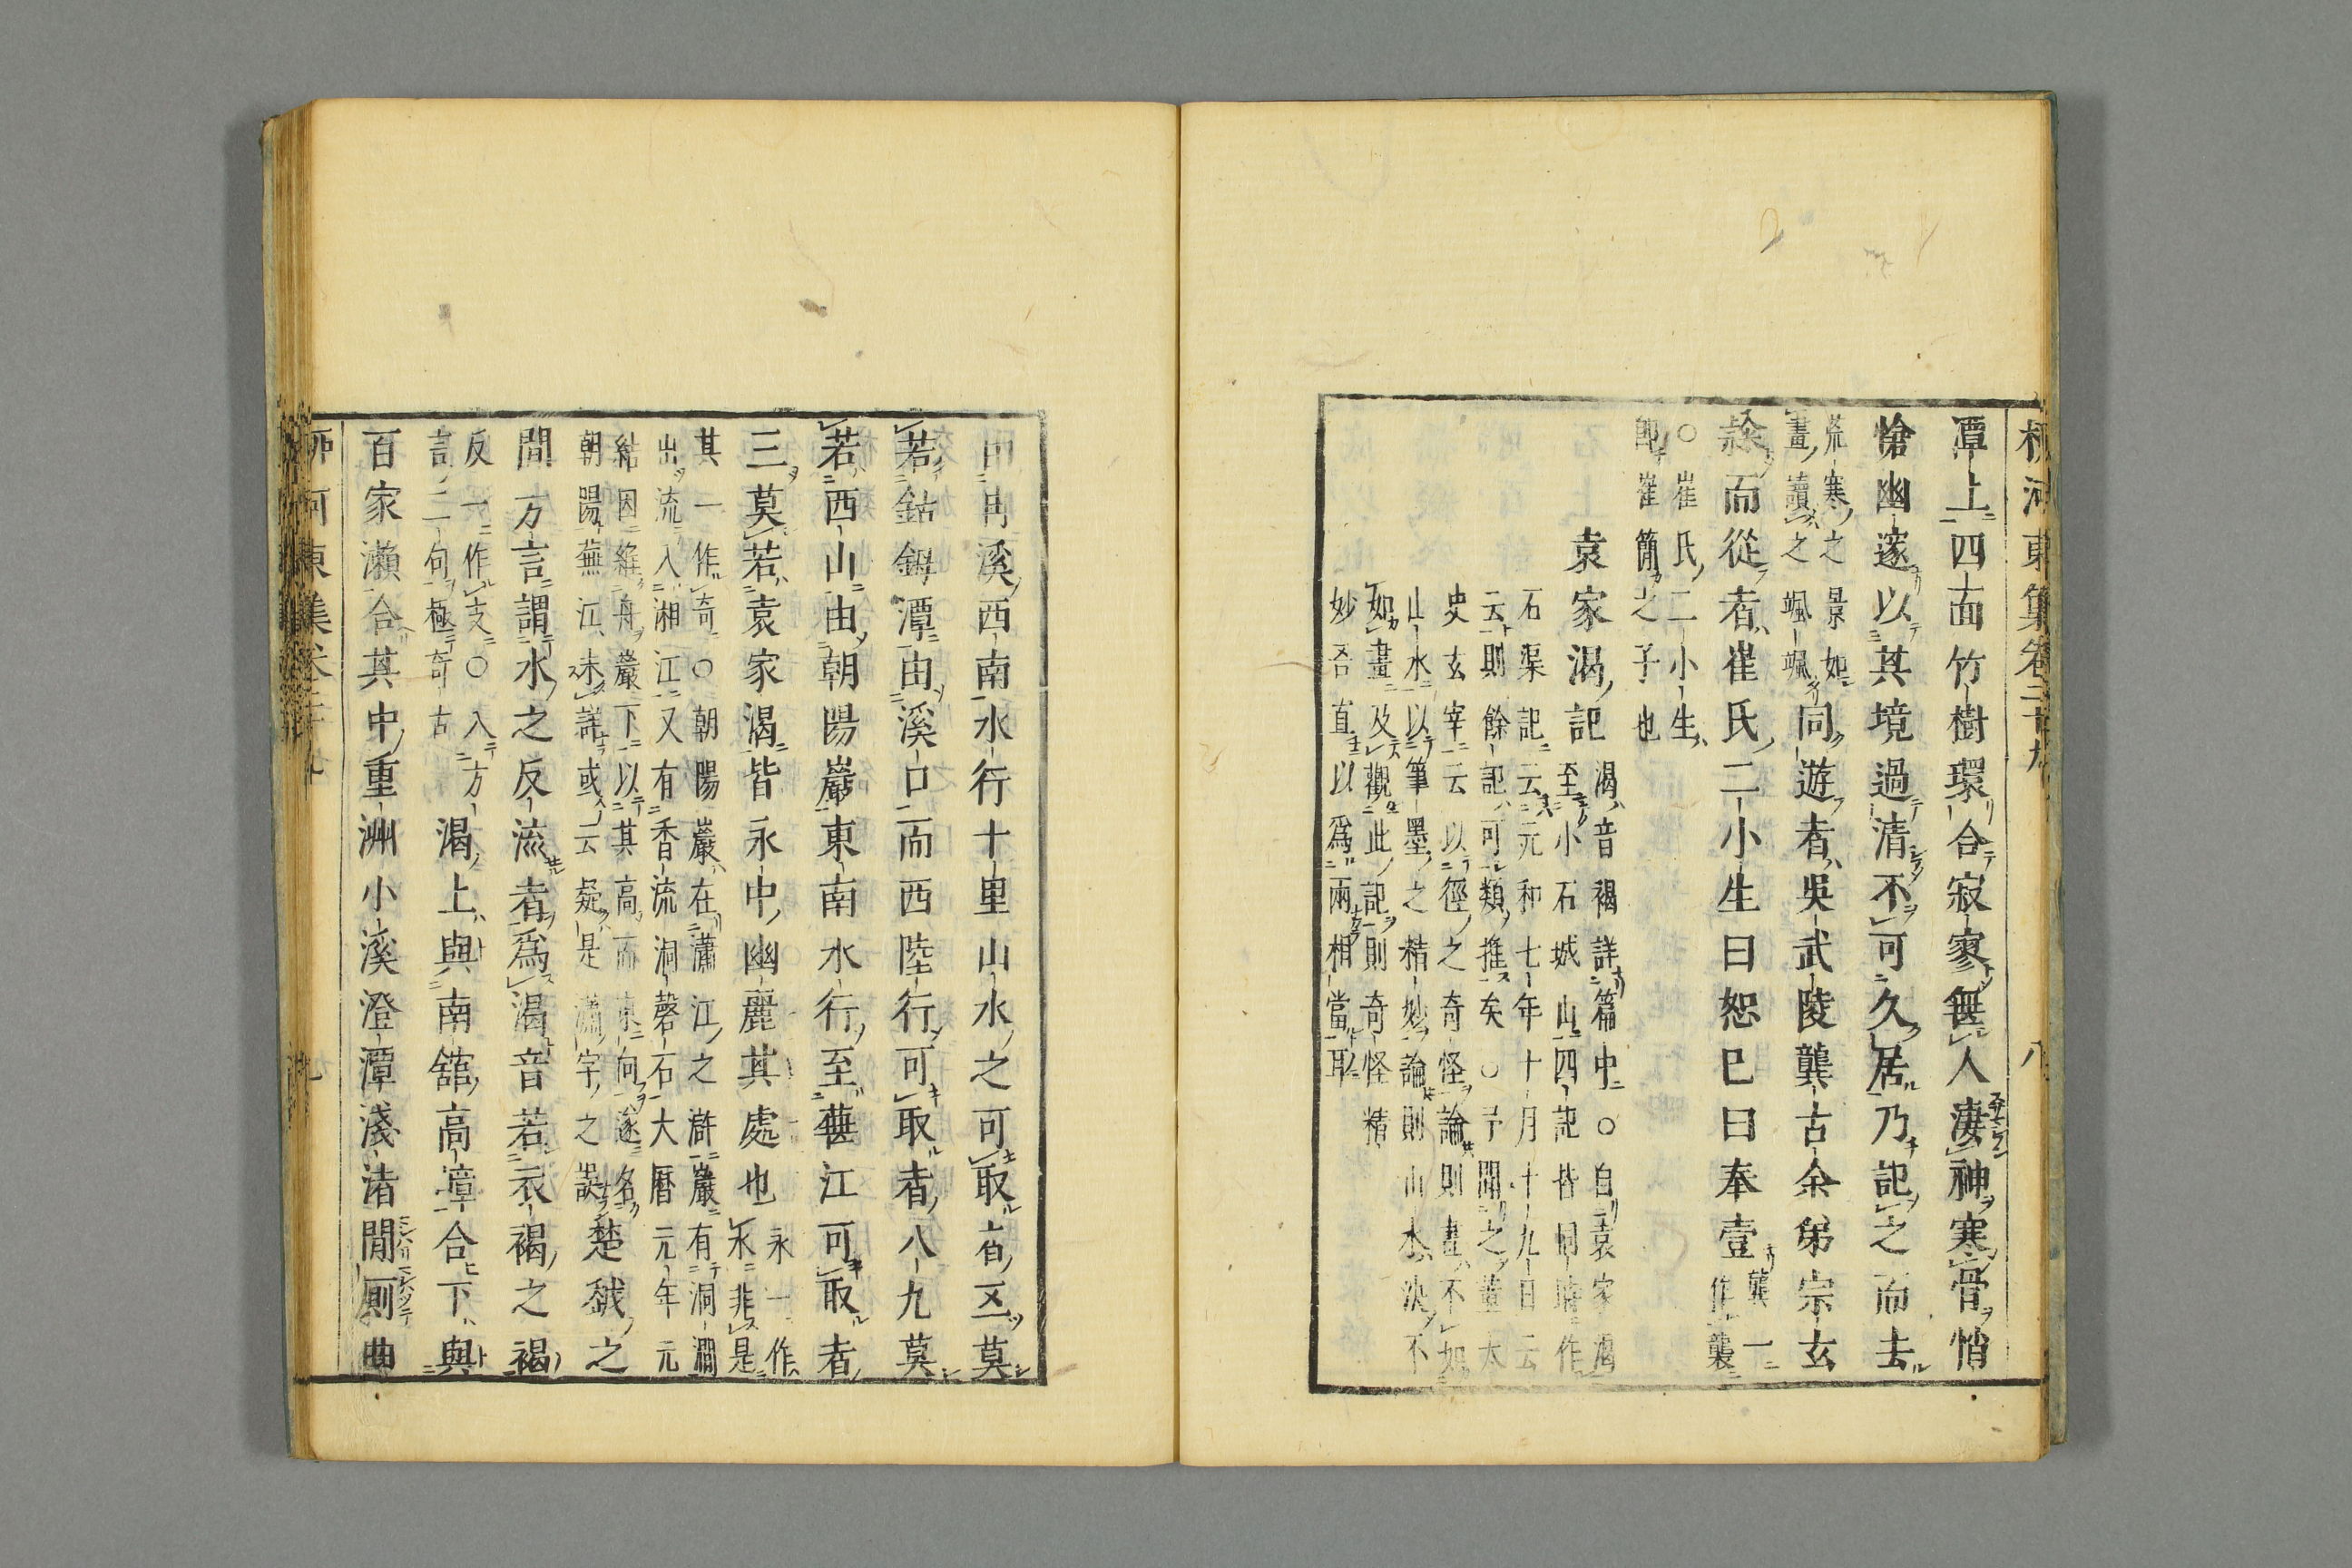 潭上四面竹樹環合寂寥無人淒神寒骨悄
愴幽邃以其境過清不可久居乃記之而去
荒寒之景如
畫讀之颯颯
同遊者吳武陵龔古余弟宗玄
龔一
作襲
隸而從者崔氏二小生曰恕巳曰奉壹
○崔氏二小生
即崔簡之子也
袁家渴記
渴音褐詳篇中○自袁家渴
至小石城山四記皆同時作
石渠記云元和七年十月十九日云
云則餘記可類推矣○予聞之董太
史玄宰云以徑之奇怪論則畫不如
山水以筆墨之精妙論則山水決不
如畫及觀此記則奇怪精
妙吾直以為兩相當耳
由冉溪西南水行十里山水之可取者五莫
若鈷鉧潭由溪口而西陸行可取者八九莫
若西山由朝陽巖東南水行至蕪江可取者
三莫若袁家渴皆永中幽麗其處也
永一作
永非是
其一作奇○朝陽巖在瀟江之滸巖有洞澗
出流入湘江又有香流洞磬石大曆元年元
結因維舟巖下以其高而東向遂名
朝陽蕪江未詳或云疑是瀟字之誤
楚越之
間方言謂水之反流者為渴音若衣褐之褐
反一作支○入方
言二句極奇古
渴上與南館高嶂合下與
百家瀨合其中重洲小溪澄潭淺渚間廁曲
柳河東集卷二十九
八
柳河東集卷二十九
九